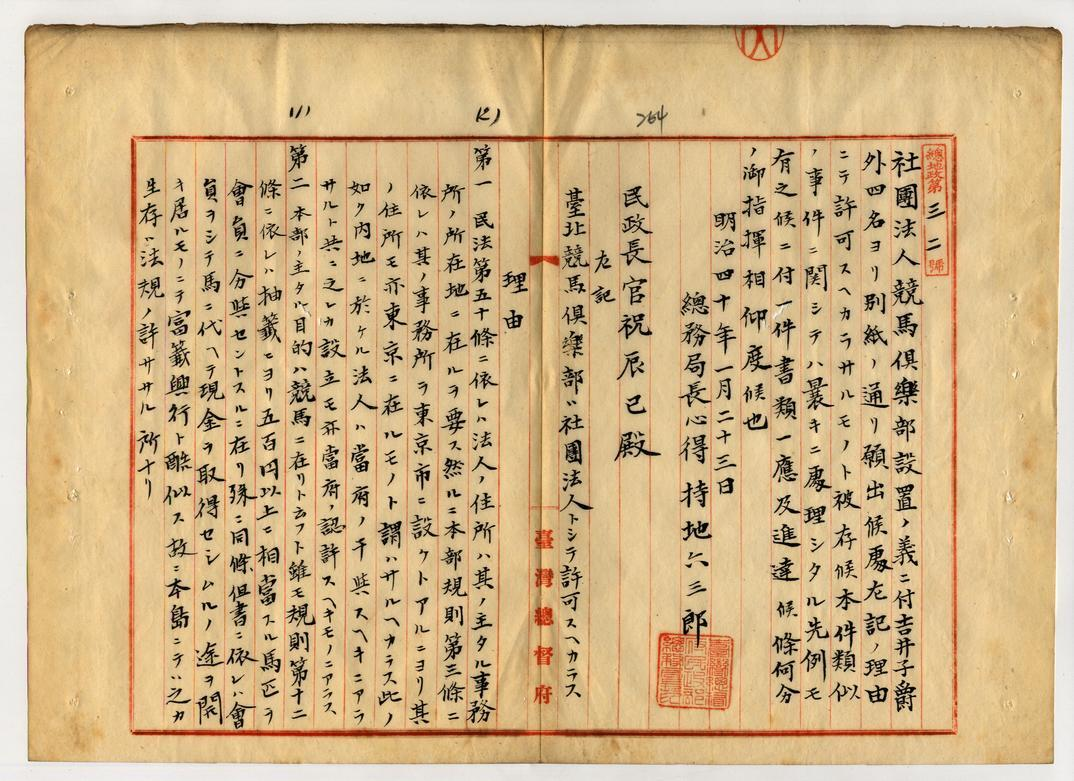 264
(一)
(二)
總地政第三二號
社團法人競馬倶樂部設置ノ義ニ付吉井子爵
外四名ヨリ別紙ノ通リ願出候處左記ノ理由
ニテ許可スヘカラサルモノト被存候本件類似
ノ事件ニ関シテハ曩キニ處理シタル先例モ
有之候ニ付一件書類一應及進達候條何分
ノ御指揮相仰度候也
明治四十年一月二十三日
總務局長心得持地六三郎
民政長官祝辰巳殿
左記
臺北競馬倶樂部ハ社團法人トシテ許可スヘカラス
臺灣總督府
理由
第一 民法第五十條ニ依レハ法人ノ住所ハ其ノ主タル事務
所ノ所在地ニ在ルヲ要ス然ルニ本部規則第三條ニ
依レハ其ノ事務所ヲ東京市ニ設ケトアルニヨリ其
ノ住所モ亦東京ニ在ルモノト謂ハサルヘカラス此ノ
如ク内地ニ於ケル法人ハ當府ノ干與スヘキニアラ
サルト共ニ之レカ設立モ亦當府ノ認許スヘキモノニアラス
第二 本部ノ主タル目的ハ競馬ニ在リト云フト雖モ規則第十二
條ニ依レハ抽籤ニヨリ五百円以上ニ相當スル馬匹ヲ
會員ニ分與セントスルニ在リ殊ニ同條但書ニ依レハ會
員ヲシテ馬ニ代ヘテ現金ヲ取得セシムルノ途ヲ開
キ居ルモノニテ富籤興行ト酷似ス故ニ本島ニテハ之カ
生存ハ法規ノ許サヽル所ナリ